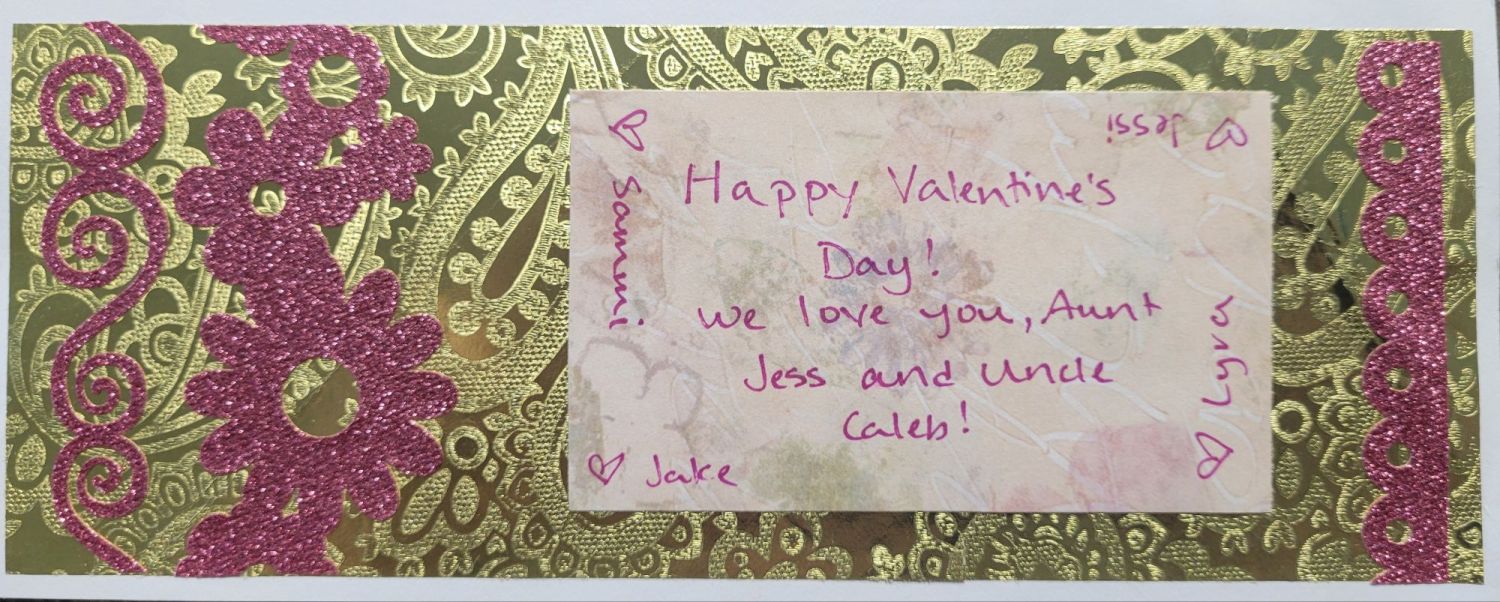 Happy Valentine's
Day!
we love you, Aunt
Jess and Uncle
Caleb!
Jake
Sammi
Jessi
Lyra